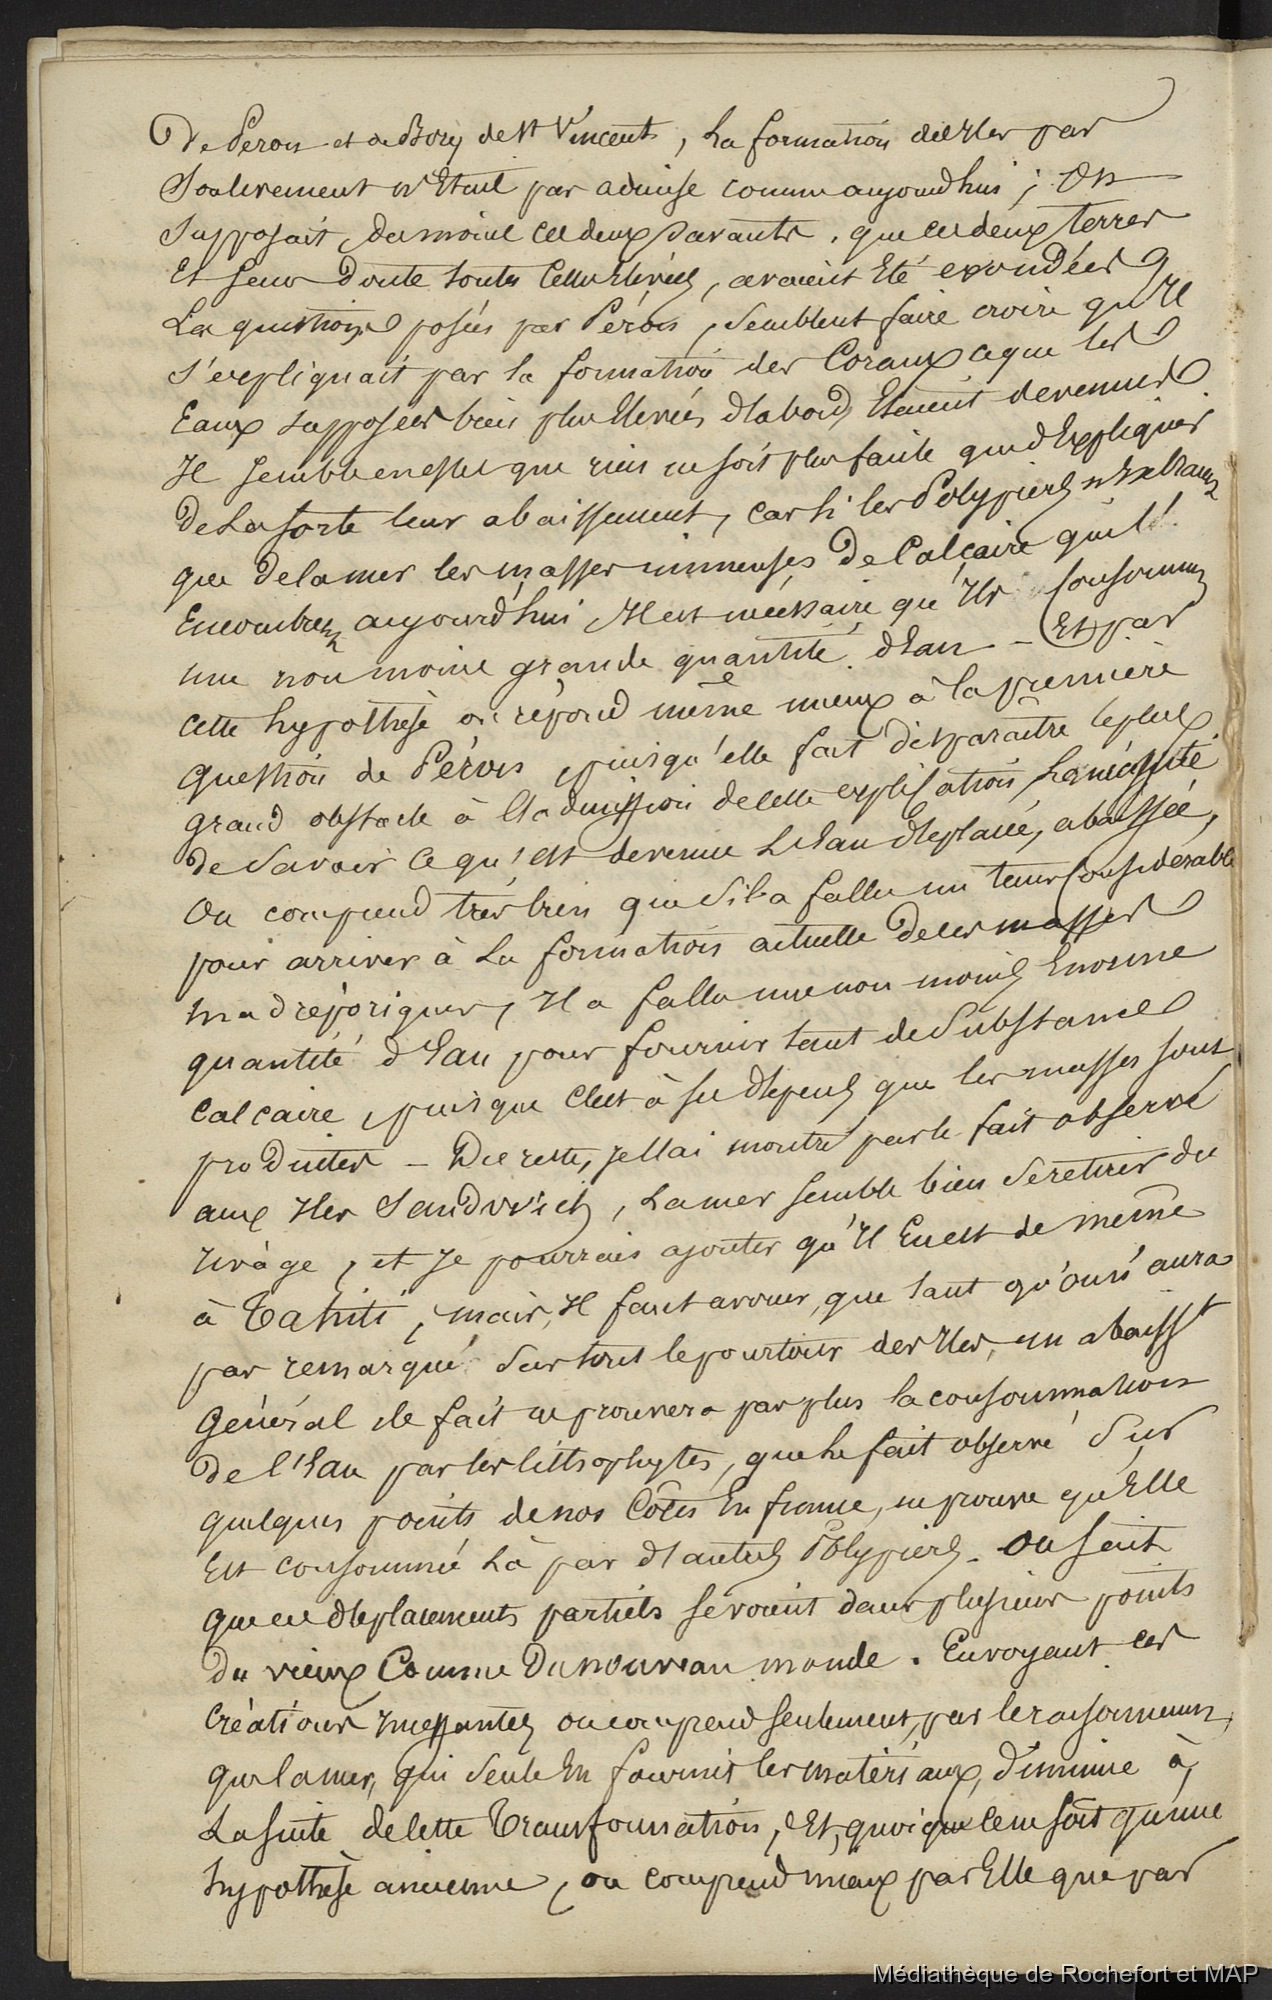 De Péron et de Bory de St Vincent, La formation des Iles par
Soulevement n'Etait pas admise comme aujourd'hui ; On
Supposait, du moins ces deux Savants, que ces deux terres
Et sans Doute toutes Celles Elevées, avaient Eté exondées
Les questions posées par Péron, Semblent faire croire qu'Il
S'expliquait par la formation des Coraux ce que les
Eaux supposées bien plus Elevées d'abord, Etaient devenues
Il semble en effet que rien ne soit plus facile que d'Expliquer
De la sorte leur abaissement, car si les Polypiers n'Extraient
que de la mer les masses immenses De Calcaire qui l'
Encombrent aujourd'hui Il est nécessaire qu'Ils Consomment
une non moins grande quantité d'Eau - Et par
cette hypothèse on répond même mieux à la première
question de Péron, puisqu'elle fait disparaître le plus
grand obstacle à l'admission de cette explication, La nécessité
de Savoir ce qu'est devenue L'Eau déplacée, abaissée,
On comprend très bien que s'il a fallu un tems Considérable
pour arriver à La formation actuelle De ces masses
madréporiques, Il a fallu une non moins Enorme
quantité d'Eau pour fournir tant de Substance
Calcaire, puisque C'est à ses dépens que les masses sont
produites - Du reste, je l'ai montré par le fait observé
aux Iles Sandwich, La mer semble bien se retirer du
rivage, et Je pourrais ajouter qu'Il En est de même
à Tahiti, mais, Il faut avouer, que tant qu'on n'aura
pas remarqué Sur tout le pourtour des Iles, un abaisst
Général le fait ne prouvera pas plus la consommation
De l'Eau par les lithophytes, que le fait observé Sur
quelques points de nos Côtes En france, ne prouve qu'Elle
Est consommée Là par d'autres Polypiers. On sait
que ces déplacements partiels se voient dans plusieurs points
du vieux Comme Du nouveau monde. En voyant ces
Créations incessantes on comprend seulement, par le raisonnement,
que la mer, qui Seule En fournit les matériaux, Diminue à
La suite de cette Transformation, Et, quoique ce ne soit qu'une
hypothèse ancienne, on comprend mieux par Elle que par
Médiathèque de Rochefort et MAP